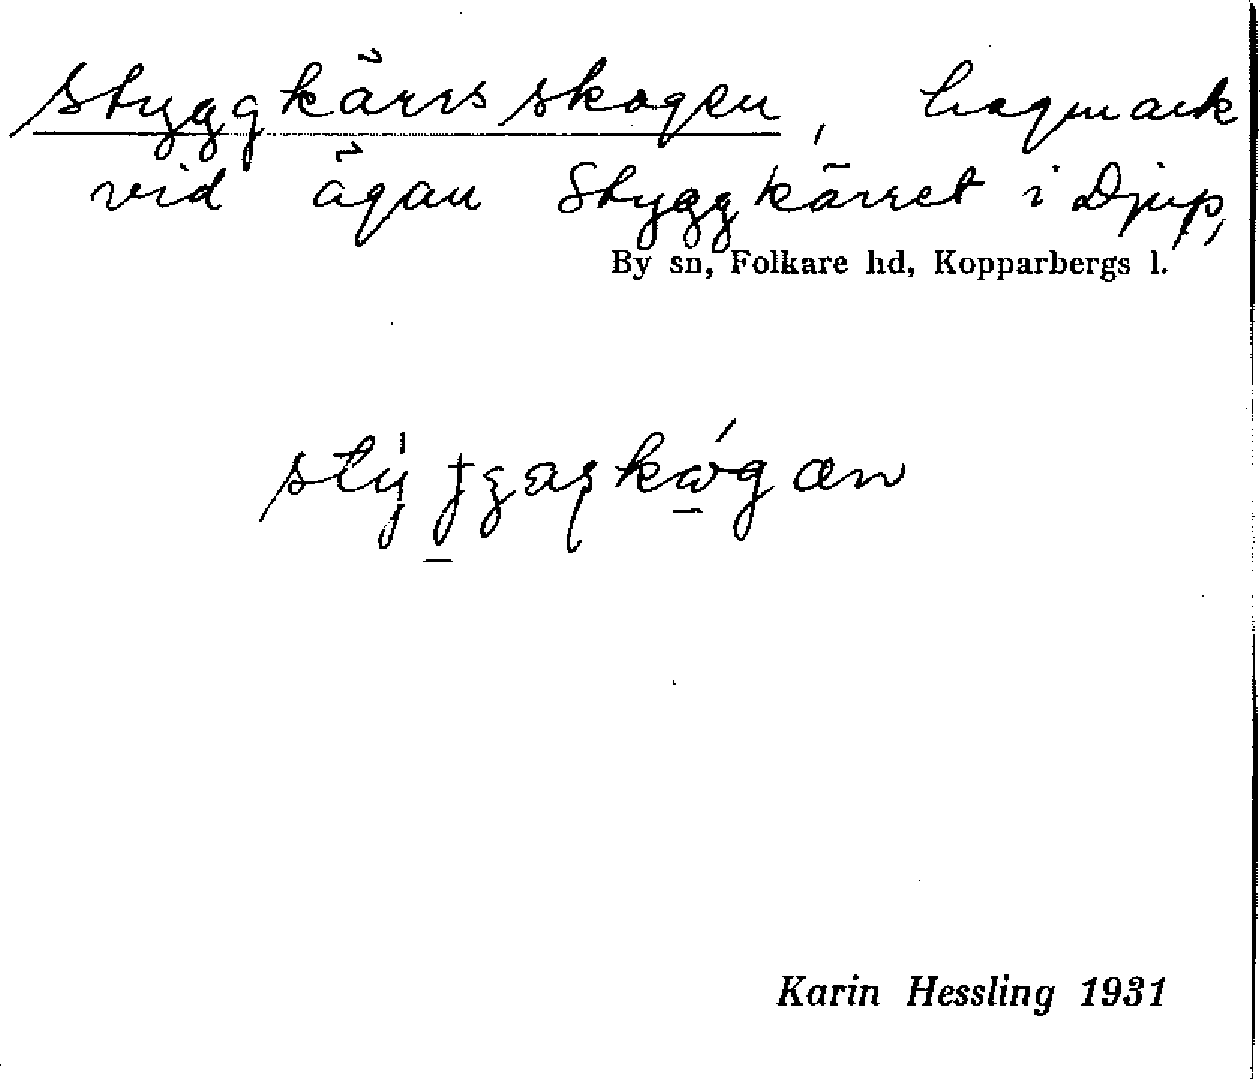 Styggkärrsskogen, hagmark
vid ägan Styggkärret i Djup,
By sn, Folkare hd, Kopparbergs l.
Karin Hessling 1931